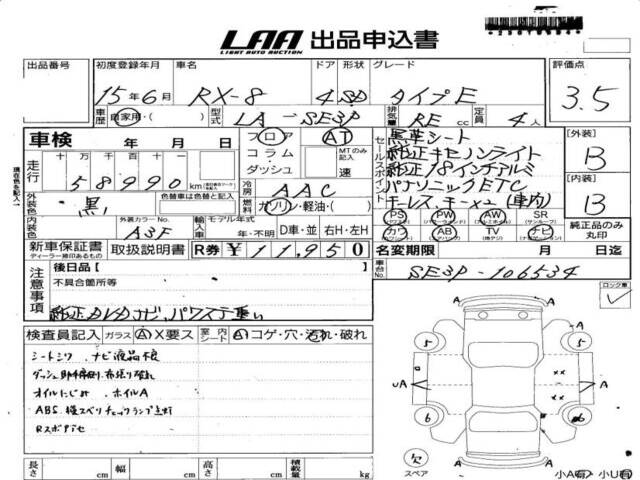 LAA 出品申込書
LIGHT AUTO AUCTION
出品番号 初度登録年月 車名 ドア 形状 グレード 評価点
15年6月 RX-8 4 SD タイプE 3.5
車歴 自家用・( ) 型式 LA-SE3P 排気量 RE cc 定員 4人
車検 年 月 日 フロア AT 黒革シート 【外装】
現在色を記入→ 走行 十 万 千 百 十 コラム・ダッシュ MTのみ記入 速 セールスポイント 純正キセノンライト B
58990 km 純正18インチアルミ
外装色 車色替は色替と記入 黒 冷房 AAC パナソニックETC 【内装】
燃料 ガソリン・軽油・( ) キーレス、キー×2 (車内) B
内装色 外装カラーNo. A3F 輸入車 モデル年式 年・不明 D車・並 右H・左H
PS パワーステアリング PW パワーウィンドウ AW アルミホイール SR サンルーフ 純正品のみ丸印
カワ AB エアバッグ TV ナビ
新車保証書 取扱説明書 R券 ¥11,950 名変期限 月 日迄
ディーラー捺印あるもの
注意事項 後日品 [ ] 車台No. SE3P-106534
不具合箇所等 ロック車
純正カレカナビ、パワステ重い
検査員記入 ガラス A X要ス 室内 シート A コゲ・穴・汚れ・破れ
シートシワ、ナビ液晶不良
オイルにじみ ホイルA
ABS、横スベリチェックランプ点灯
長さ cm 幅 cm 高さ cm 積載量 kg
A
A A
5 5
UA A
6 6
A A
スペア 小A有 小U有